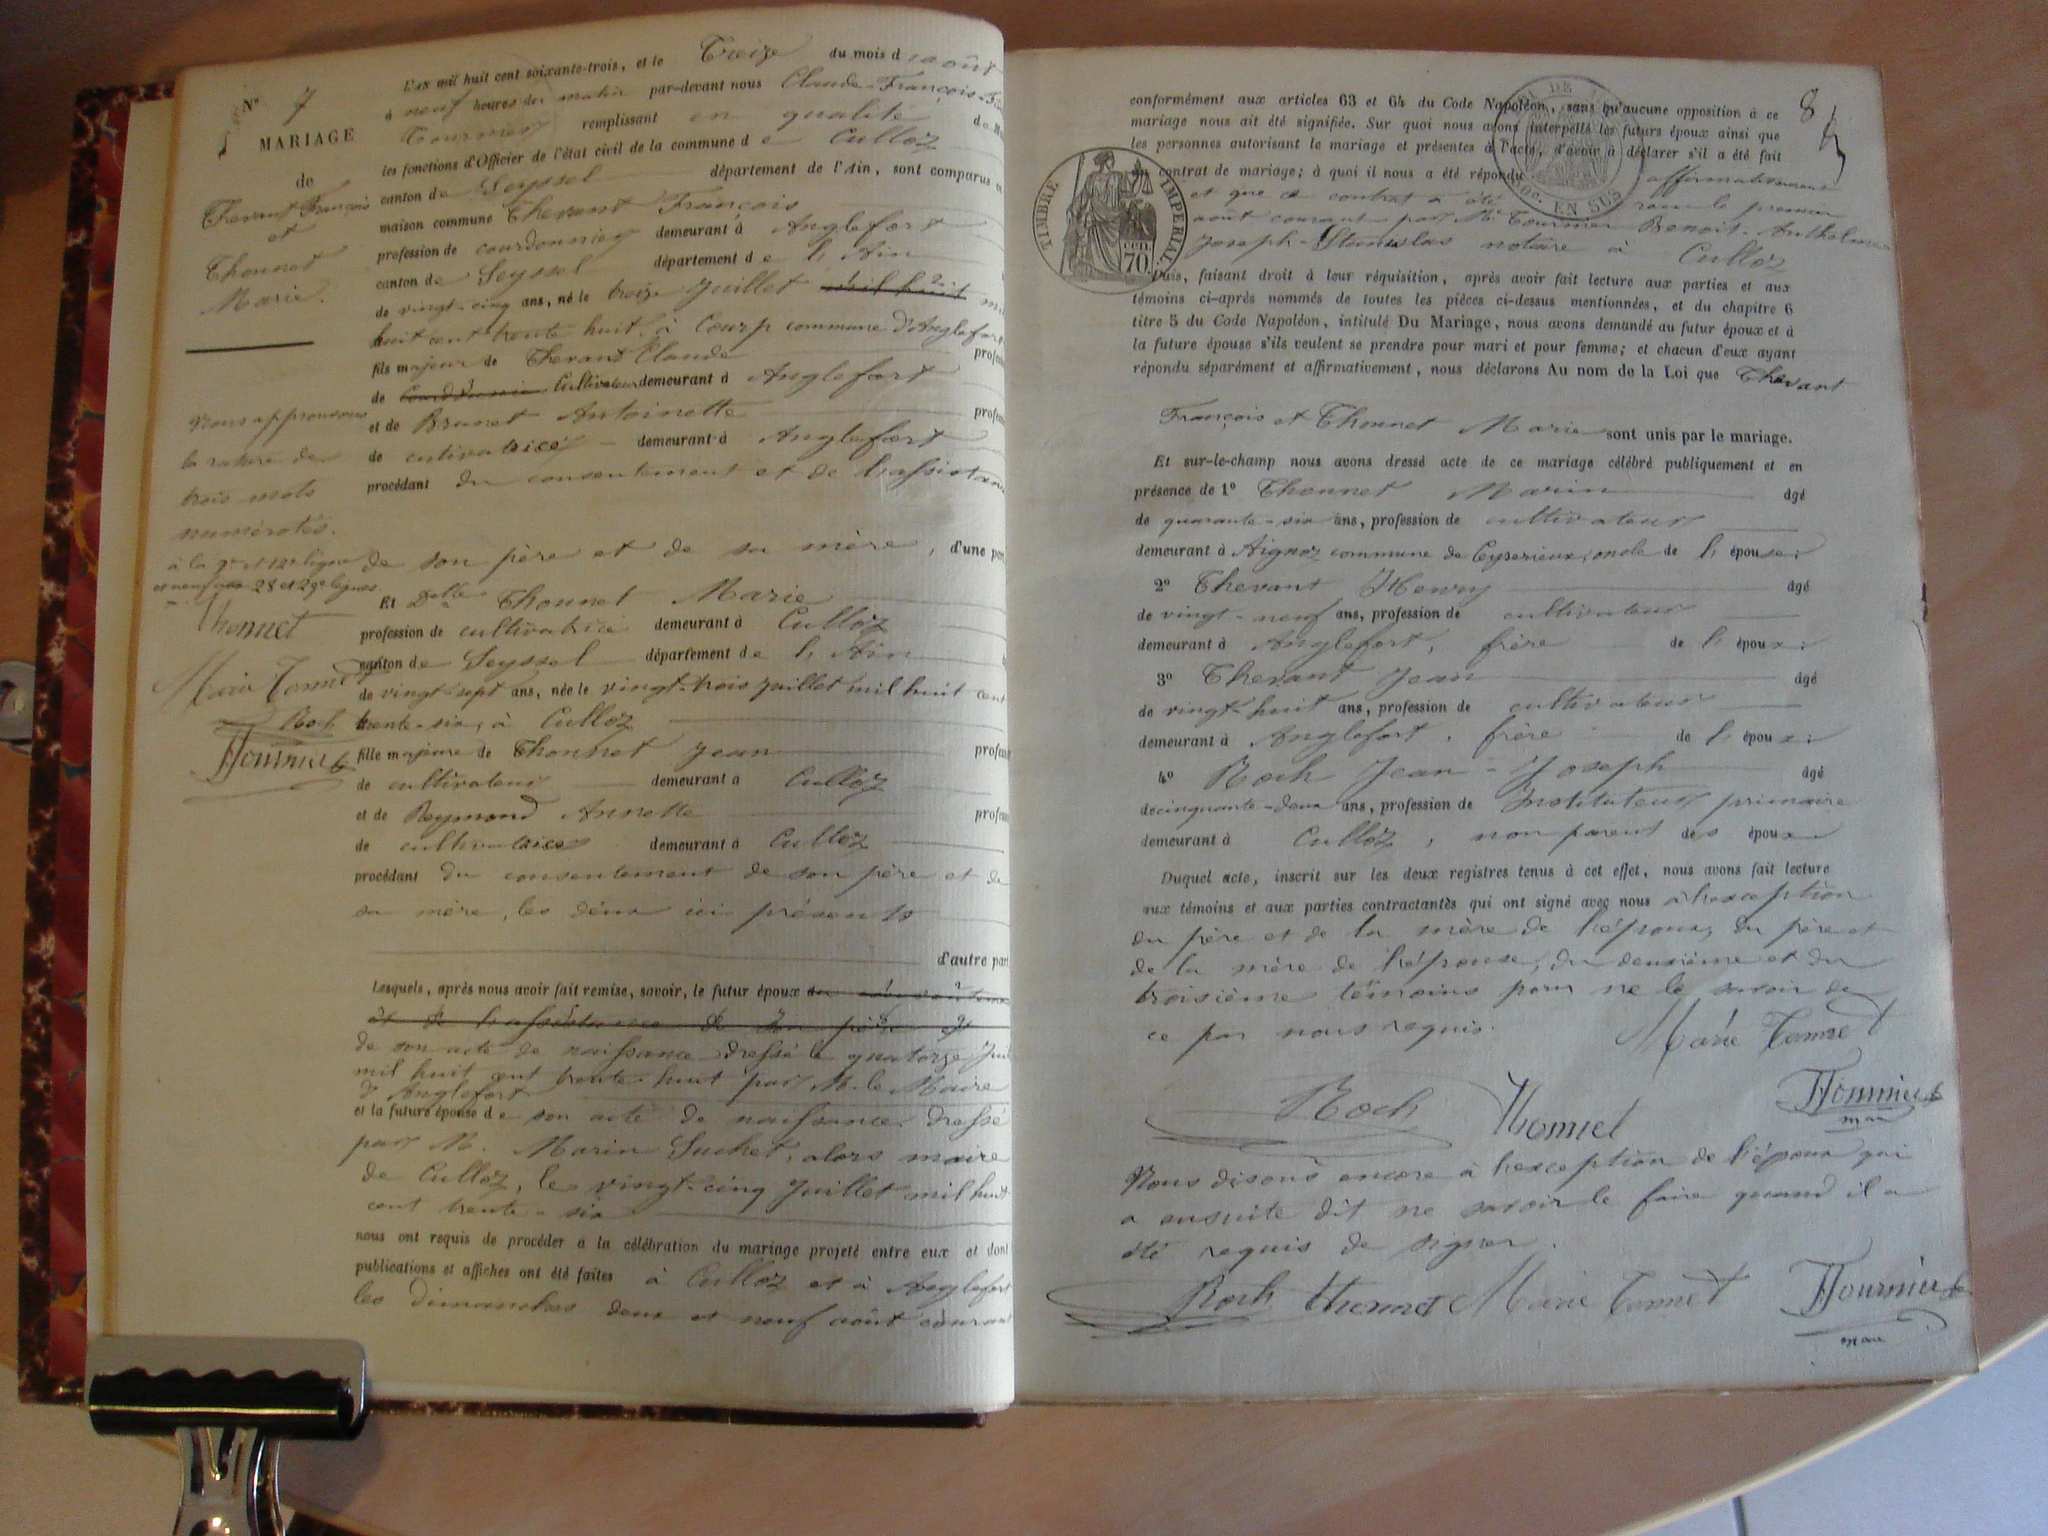 N° 7
MARIAGE
de
Thevant François
et
Thonnet
Marie.
Nous approuvons
la rature de
trois mots
numérotés.
à la 9e et 12e ligne
et neuf 28 et 29e lignes
Thonnet
Marie Tonnet
Roch
Tournier
L'an mil huit cent soixante-trois, et le Treize du mois d août
à neuf heures du matin par-devant nous Claude-François-
Tournier remplissant en qualité de M
les fonctions d'Officier de l'état civil de la commune de Culloz
canton de Seyssel département de l'Ain, sont comparus en
maison commune Thevant François
profession de courdonnier demeurant à Anglefort
canton de Seyssel département de l'Ain
de vingt-cinq ans, né le treize Juillet mil huit mil
huit cent trente huit, à Courp commune d'Anglefort
fils majeur de Thevant Claude profes
de Cultivateur demeurant à Anglefort
et de Brunet Antoinette profes
de cultivatrice demeurant à Anglefort
procédant du consentement et de l'assistan
de son père et de sa mère, d'une par
Et Delle Thonnet Marie
profession de cultivatrice demeurant à Culloz
canton de Seyssel département de l'Ain
de vingt-sept ans, née le vingt-trois Juillet mil huit cent
trente-six, à Culloz
fille majeure de Thonnet Jean profess
de cultivateur demeurant à Culloz
et de Reymond Annette profess
de cultivatrice demeurant à Culloz
procédant du consentement de son père et de
sa mère, les deux ici présents
d'autre part
Lesquels, après nous avoir fait remise, savoir, le futur époux
et de l'assistance de son père et
de son acte de naissance dressé le quatorze Juil
mil huit cent trente-huit par M. le Maire
d'Anglefort
et la future épouse de son acte de naissance dressé
par M. Marin Suchet, alors maire
de Culloz, le vingt-cinq Juillet mil huit
cent trente-six
nous ont requis de procéder à la célébration du mariage projeté entre eux et dont
publications et affiches ont été faites à Culloz et à Anglefort
les dimanches deux et neuf août courant
8
conformément aux articles 63 et 64 du Code Napoléon, sans qu'aucune opposition à ce
mariage nous ait été signifiée. Sur quoi nous avons interpellé les futurs époux ainsi que
les personnes autorisant le mariage et présentes à l'acte, d'avoir à déclarer s'il a été fait
contrat de mariage; à quoi il nous a été répondu affirmativement
et que ce contrat a été reçu le premier
août courant par Me Tournier Benoit-Anthelme
Joseph-Stanislas notaire à Culloz
TIMBRE IMPERIAL
cen. 70.
EN SUS
Puis, faisant droit à leur réquisition, après avoir fait lecture aux parties et aux
témoins ci-après nommés de toutes les pièces ci-dessus mentionnées, et du chapitre 6
titre 5 du Code Napoléon, intitulé Du Mariage, nous avons demandé au futur époux et à
la future épouse s'ils veulent se prendre pour mari et pour femme; et chacun d'eux ayant
répondu séparément et affirmativement, nous déclarons Au nom de la Loi que Thevant
François et Thonnet Marie sont unis par le mariage.
Et sur-le-champ nous avons dressé acte de ce mariage célébré publiquement et en
présence de 1° Thonnet Marin âgé
de quarante-six ans, profession de cultivateur
demeurant à Aignoz commune de Ceyzerieux, oncle de l'épouse;
2° Thevant Henry âgé
de vingt-neuf ans, profession de cultivateur
demeurant à Anglefort, frère de l'époux;
3° Thevant Jean âgé
de vingt-huit ans, profession de cultivateur
demeurant à Anglefort, frère de l'époux;
4° Roch Jean-Joseph âgé
de cinquante-deux ans, profession de Instituteur primaire
demeurant à Culloz, non parent des époux
Duquel acte, inscrit sur les deux registres tenus à cet effet, nous avons fait lecture
aux témoins et aux parties contractantes qui ont signé avec nous à l'exception
du père et de la mère de l'époux, du père et
de la mère de l'épouse, du deuxième et du
troisième témoins pour ne le savoir de
ce par nous requis.
Marie Tonnet
Roch Thonnet Tournier
maire
Nous disons encore à l'exception de l'époux qui
a ensuite dit ne savoir le faire quand il a
été requis de signer.
Roch Thonnet Marie Tonnet Tournier
maire